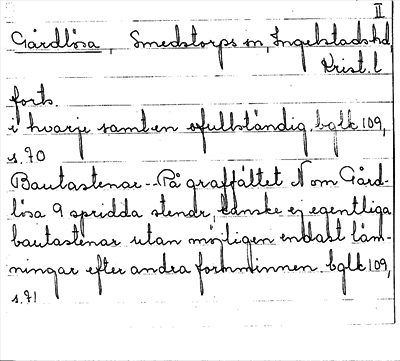 II
Gårdlösa, Smedstorps sn, Ingelstads hd,
Krist. l
forts.
i hvarje samt en ofullständig. bglk 109,
s. 70
Bautastenar -- På graffältet N om Gård-
lösa 9 spridda stenar, kanske ej egentliga
bautastenar utan möjligen endast läm-
ningar efter andra fornminnen. bglk 109,
s. 71